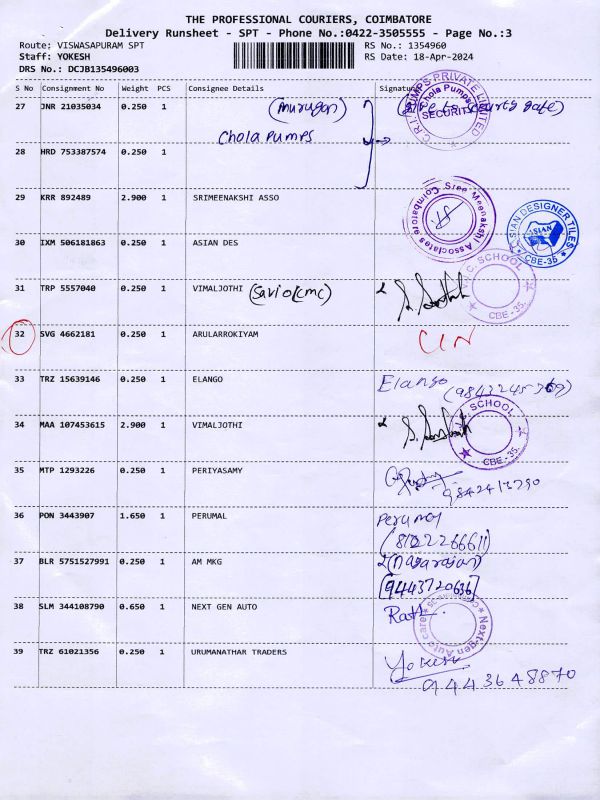 THE PROFESSIONAL COURIERS, COIMBATORE
Delivery Runsheet - SPT - Phone No.:0422-3505555 - Page No.:3
Route: VISWASAPURAM SPT
RS No.: 1354960
Staff: YOKESH
RS Date: 18-Apr-2024
DRS No.: DCJB135496003
S No Consignment No Weight PCS Consignee Details Signature
27 JNR 21035034 0.250 1 (Murugan)
Chola Pumps
C.R.I. PUMPS PRIVATE LIMITED
Chola Pumps
SECURITY
28 HRD 753387574 0.250 1
29 KRR 892489 2.900 1 SRIMEENAKSHI ASSO
Sree Meenakshi Associates
Coimbatore
30 IXM 506181863 0.250 1 ASIAN DES
ASIAN DESIGNER TILES
ASIAN
CBE-35
31 TRP 5557040 0.250 1 VIMALJOTHI (Savio(cmc)
C. SCHOOL
CBE-35.
32 SVG 4662181 0.250 1 ARULARROKIYAM
33 TRZ 15639146 0.250 1 ELANGO Elango
34 MAA 107453615 2.900 1 VIMALJOTHI
SCHOOL
CBE-35.
35 MTP 1293226 0.250 1 PERIYASAMY
9842413790
36 PON 3443907 1.650 1 PERUMAL Perumal
37 BLR 5751527991 0.250 1 AM MKG (Nagarajan)
(9443720636)
38 SLM 344108790 0.650 1 NEXT GEN AUTO
Next-gen Auto care
39 TRZ 61021356 0.250 1 URUMANATHAR TRADERS
9443648870